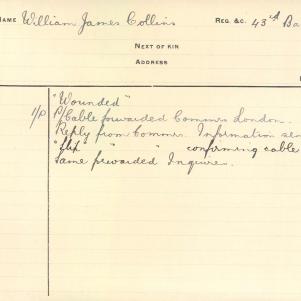 NAME William James Collins REG. &C. 43rd Ba
NEXT OF KIN
ADDRESS
"Wounded"
1/P P/Cable forwarded Commrs London.
Reply from Commrs. Information sen
" " confirming cable
same forwarded Inquirer.